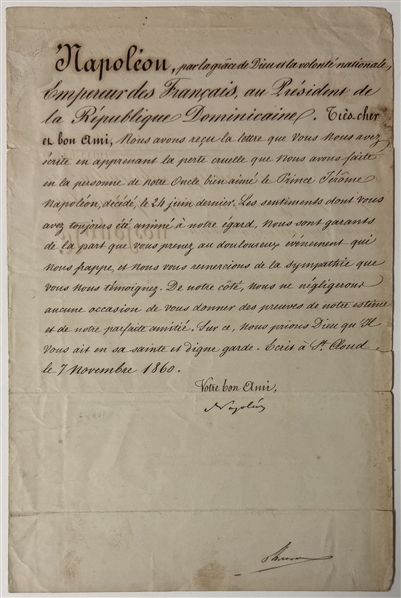 Napoléon, par la grâce de Dieu et la volonté nationale,
Empereur des Français, au Président de
la République Dominicaine. Très cher
et bon Ami, Nous avons reçu la lettre que Vous Nous avez
écrite en apprenant la perte cruelle que Nous avons faite
en la personne de notre Oncle bien aimé le Prince Jérôme
Napoléon, décédé, le 24 juin dernier. Les sentiments dont vous
avez toujours été animé à notre égard, Nous sont garants
de la part que vous prenez au douloureux événement qui
Nous frappe, et Nous vous remercions de la sympathie que
vous Nous témoignez. De notre côté, Nous ne négligerons
aucune occasion de vous donner des preuves de notre estime
et de notre parfaite amitié. Sur ce, Nous prions Dieu qu'Il
Vous ait en sa sainte et digne garde. Ecrit à St. Cloud
le 7 Novembre 1860.
Votre bon Ami,
Napoléon